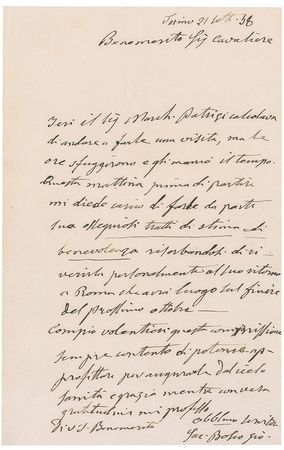 Torino 21 78bre 58
Benemerito Sig. Cavaliere
Ieri il Sig. March. Patrizi calcolava
di andare a farle una visita, ma le
ore sfuggirono e gli mancò il tempo.
Questa mattina prima di partire
mi diede carico di farle da parte
sua ossequiosi tratti di stima e di
benevolenza riserbandosi di ri-
verirla personalmente al suo ritorno
a Roma che avrà luogo sul finire
del prossimo ottobre.
Compio volentieri questa commissione
sempre contento di potermi ap-
profittare per augurarle dal cielo
sanità e grazia mentre con vera
gratitudine mi professo
Di V. S. Benemerita
Obbl.mo servitore
Sac. Bosco Gio.